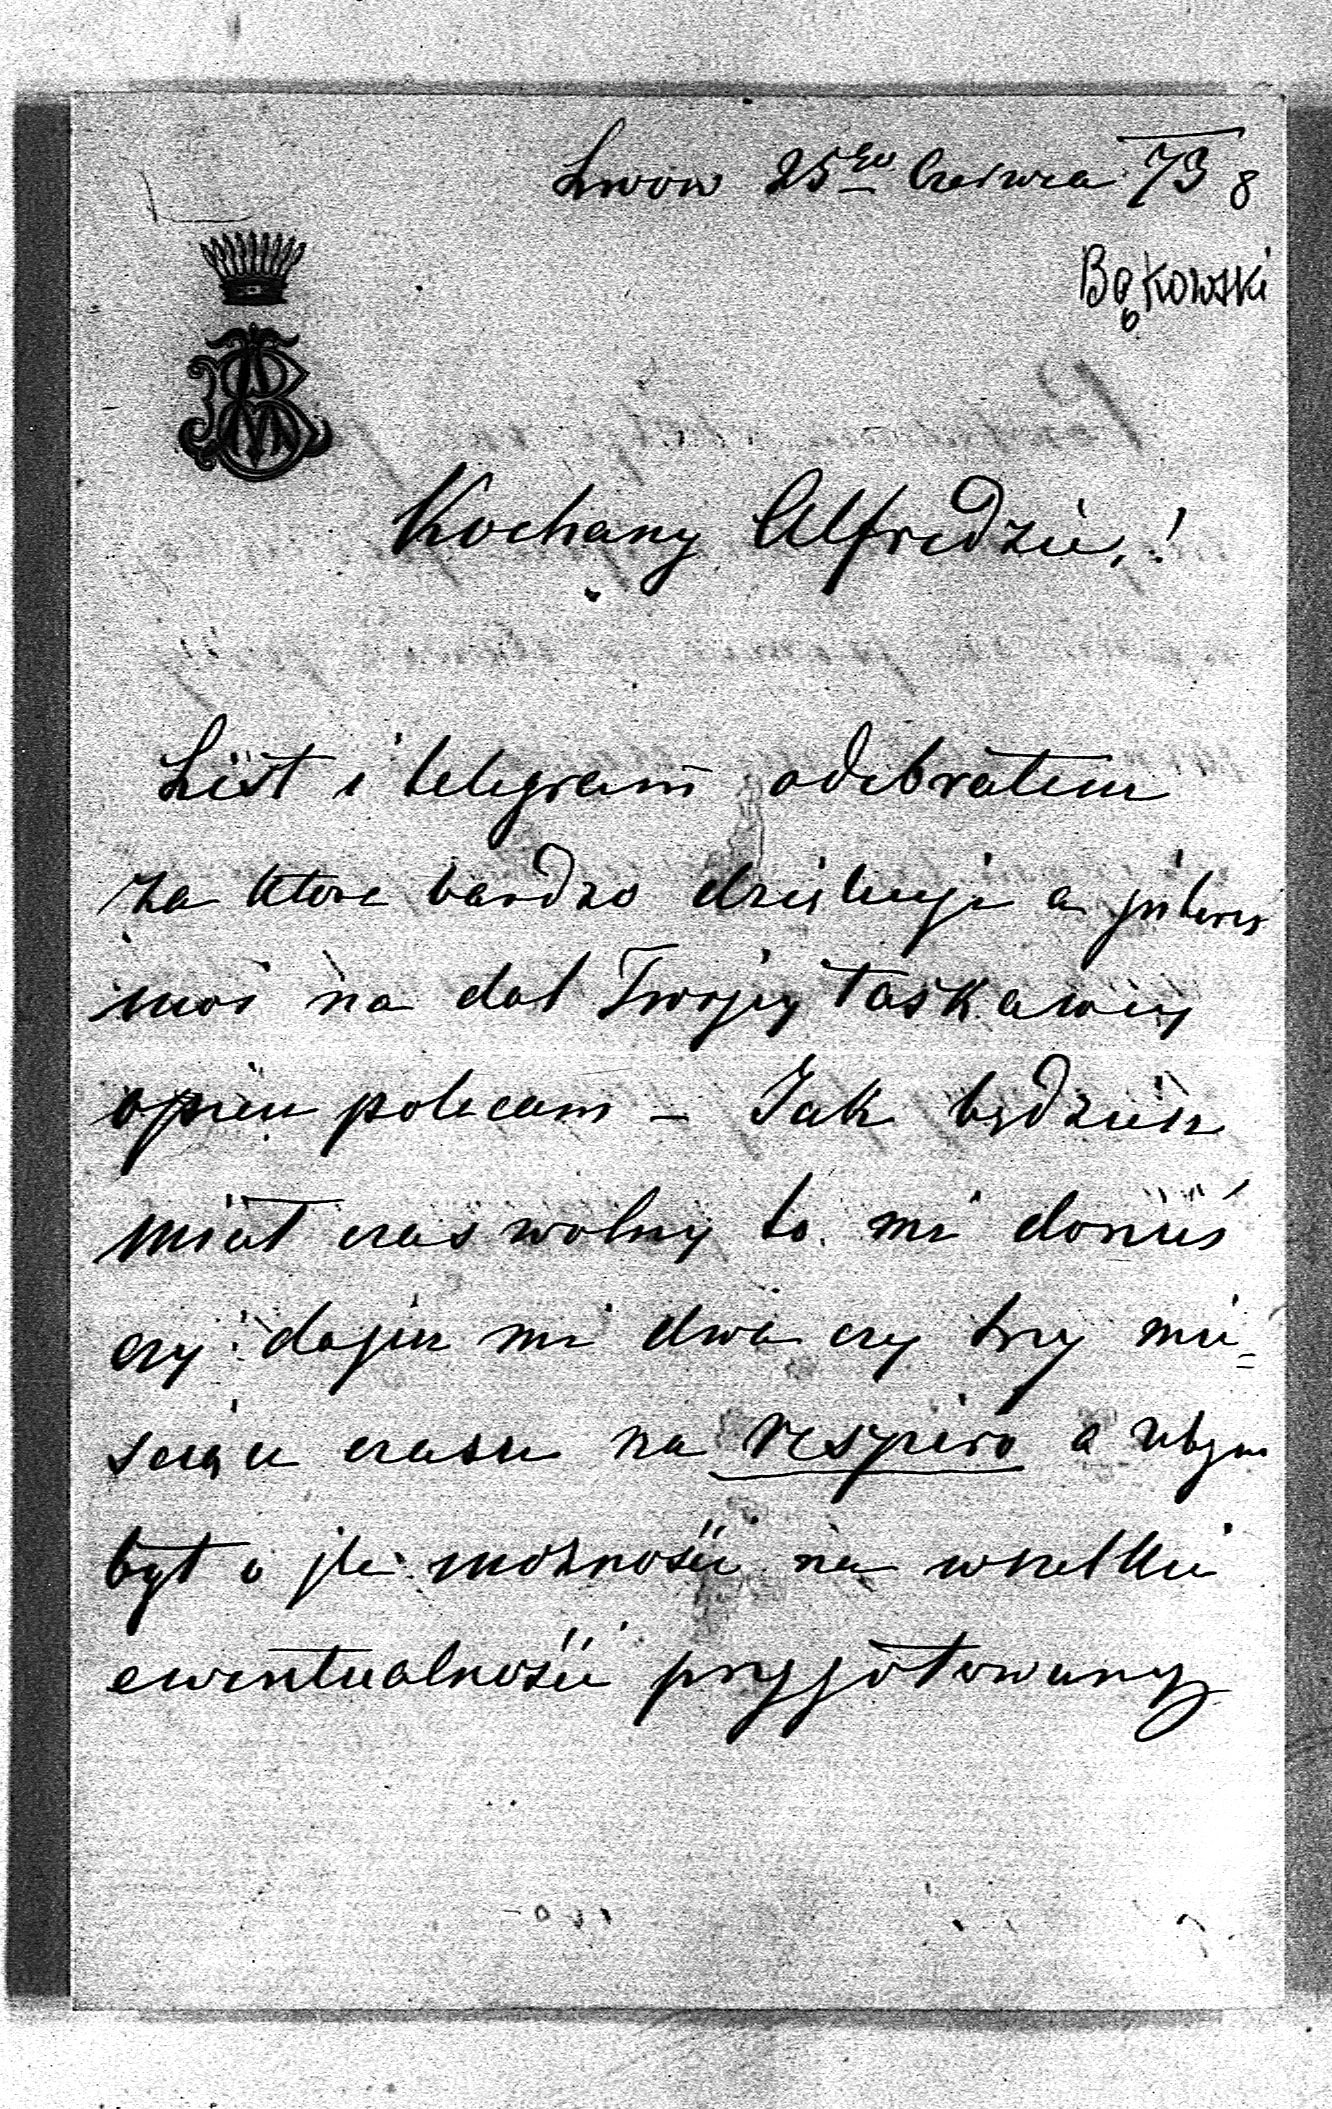 Lwow 25go Czerwca 73 8
Bąkowski
Kochany Alfredzie!
List i telegram odebrałem
za ktore bardzo dziękuję a interes
moi na dal Twojej łaskawej
opiece polecam – Jak będziesz
miał czas wolny to mi donieś
czy dajesz mi dwa czy trzy mie=
sięcu czasu na respiro a żebym
był o jle możności na wszelkie
ewentualności przyjotowany